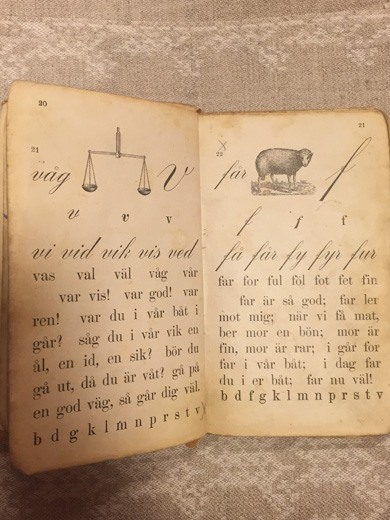 20
21
våg
V
v v v
vi vid vik vis ved
vas val väl våg vår
var vis! var god! var
ren! var du i vår båt i
går? såg du i vår vik en
ål, en id, en sik? bör du
gå ut, då du är våt? gå på
en god väg, så går dig väl.
b d g k l m n p r s t v
21
22
får
f
f f f
få får fy fyr fur
far for ful föl fot fet fin
far är så god; far ler
mot mig; när vi få mat,
ber mor en bön; mor är
fin, mor är rar; i går for
far i vår båt; i dag far
du i er båt; far nu väl!
b d f g k l m n p r s t v